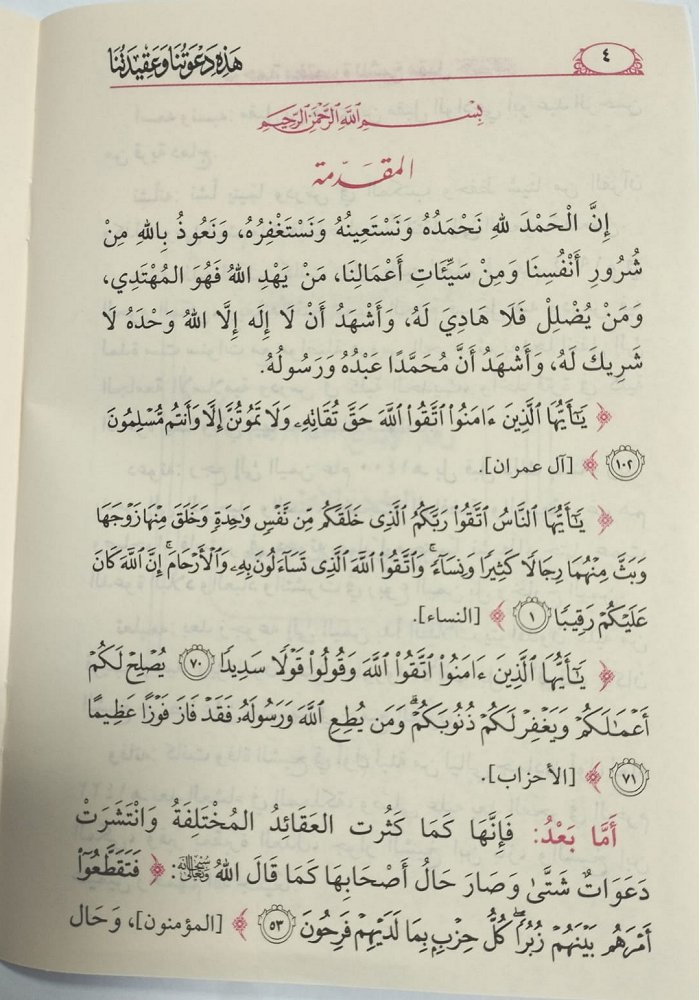 ٤
هَذِهِ دَعْوَتُنَا وَعَقِيدَتُنَا
بِسْمِ اللَّهِ الرَّحْمَٰنِ الرَّحِيمِ
المقدّمة
إِنَّ الْحَمْدَ لله نَحْمَدُهُ وَنَسْتَعِينُهُ وَنَسْتَغْفِرُهُ، وَنَعُوذُ بِاللهِ مِنْ
شُرُورِ أَنْفُسِنَا وَمِنْ سَيِّئَاتِ أَعْمَالِنَا، مَنْ يَهْدِ اللهُ فَهُوَ المُهْتَدِي،
وَمَنْ يُضْلِلْ فَلَا هَادِيَ لَهُ، وَأَشْهَدُ أَنْ لَا إِلَه إِلَّا اللهُ وَحْدَهُ لَا
شَرِيكَ لَهُ، وَأَشْهَدُ أَنَّ مُحَمَّدًا عَبْدُهُ وَرَسُولُهُ.
﴿ يَٰٓأَيُّهَا ٱلَّذِينَ ءَامَنُوا۟ ٱتَّقُوا۟ ٱللَّهَ حَقَّ تُقَاتِهِۦ وَلَا تَمُوتُنَّ إِلَّا وَأَنتُم مُّسْلِمُونَ
١٠٢ ﴾ [آل عمران].
﴿ يَٰٓأَيُّهَا ٱلنَّاسُ ٱتَّقُوا۟ رَبَّكُمُ ٱلَّذِى خَلَقَكُم مِّن نَّفْسٍ وَٰحِدَةٍ وَخَلَقَ مِنْهَا زَوْجَهَا
وَبَثَّ مِنْهُمَا رِجَالًا كَثِيرًا وَنِسَآءً ۚ وَٱتَّقُوا۟ ٱللَّهَ ٱلَّذِى تَسَآءَلُونَ بِهِۦ وَٱلْأَرْحَامَ ۚ إِنَّ ٱللَّهَ كَانَ
عَلَيْكُمْ رَقِيبًا ١ ﴾ [النساء].
﴿ يَٰٓأَيُّهَا ٱلَّذِينَ ءَامَنُوا۟ ٱتَّقُوا۟ ٱللَّهَ وَقُولُوا۟ قَوْلًا سَدِيدًا ٧٠ يُصْلِحْ لَكُمْ
أَعْمَٰلَكُمْ وَيَغْفِرْ لَكُمْ ذُنُوبَكُمْ ۗ وَمَن يُطِعِ ٱللَّهَ وَرَسُولَهُۥ فَقَدْ فَازَ فَوْزًا عَظِيمًا
٧١ ﴾ [الأحزاب].
أَمَّا بَعْدُ: فَإِنَّهَا كَمَا كَثُرت العَقَائِدُ المُخْتَلِفَةُ وَانْتَشَرَتْ
دَعَوَاتٌ شَتَّىٰ وَصَارَ حَالُ أَصْحَابِهَا كَمَا قَالَ اللهُ سبحانه وتعالى: ﴿ فَتَقَطَّعُوٓا۟
أَمْرَهُم بَيْنَهُمْ زُبُرًا ۖ كُلُّ حِزْبٍۭ بِمَا لَدَيْهِمْ فَرِحُونَ ٥٣ ﴾ [المؤمنون]، وَحَال